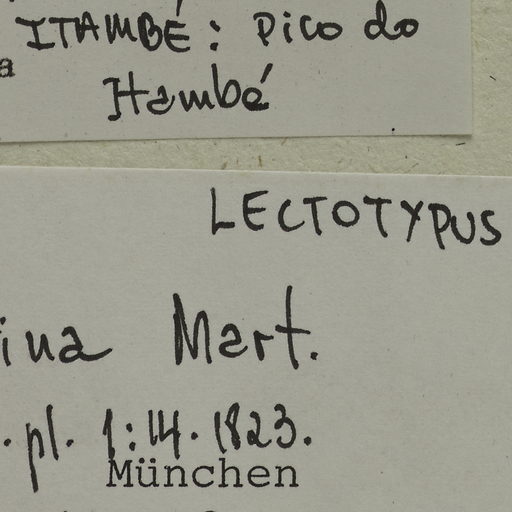 ITAMBÉ: Pico do
a
Itambé
LECTOTYPUS
ina Mart.
. pl. 1:14. 1823.
München